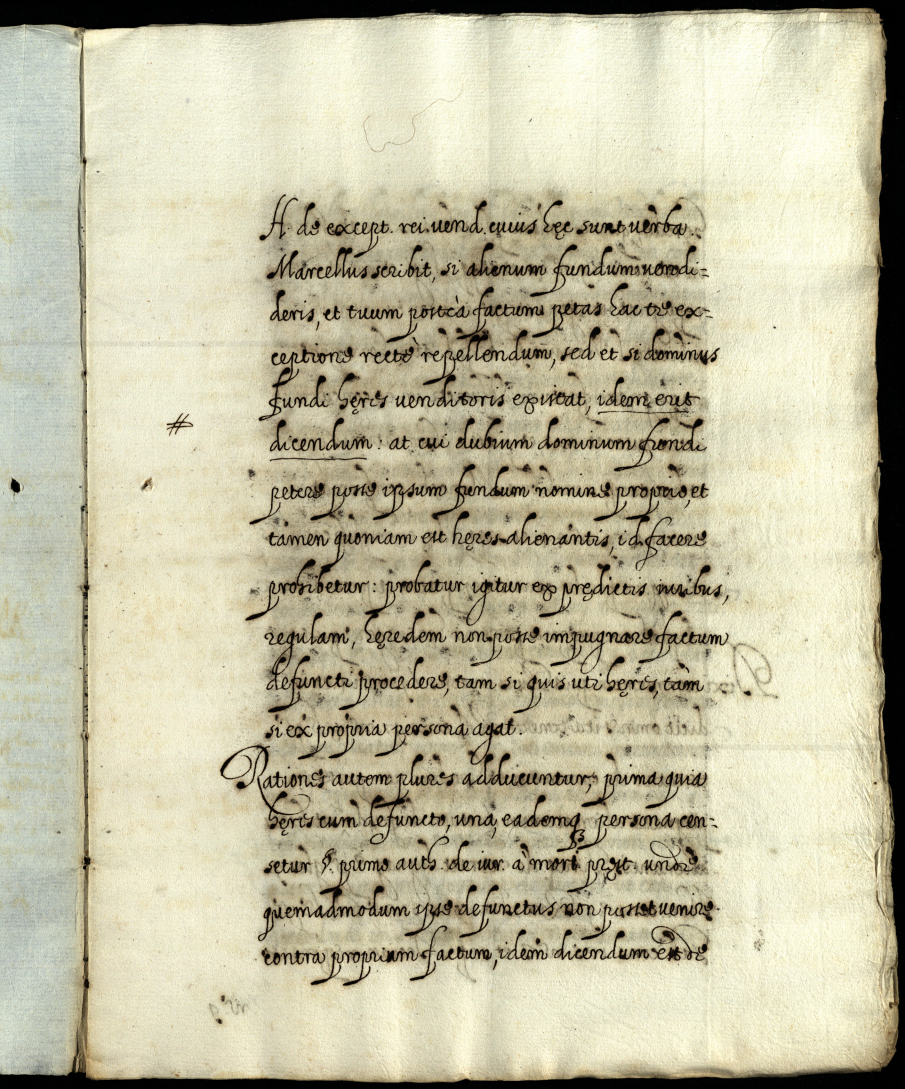 ff. de except. rei. vend. cuius hęc sunt verba
Marcellus scribit, si alienum fundum vendi=
deris, et tuum posteà factum petas hac te ex=
ceptione rectè repellendum, sed et si dominus
fundi hęres venditoris existat, idem erit
#
dicendum: at cui dubium dominum fundi
petere posse ipsum fundum nomine proprio, et
tamen quoniam est hęres alienantis, id facere
prohibetur: probatur igitur ex prędictis iuribus,
regulam, hęredem non posse impugnare factum
defuncti procedere, tam si quis uti hęres, tam
si ex propria persona agat.
Rationes autem plures adducuntur, prima quia
hęres cum defuncto, una, eademq₃ persona cen=
setur §. primo auth. de iur. à mort pręst. unde
quemadmodum ipse defunctus non posset venire
contra proprium factum, idem dicendum est de